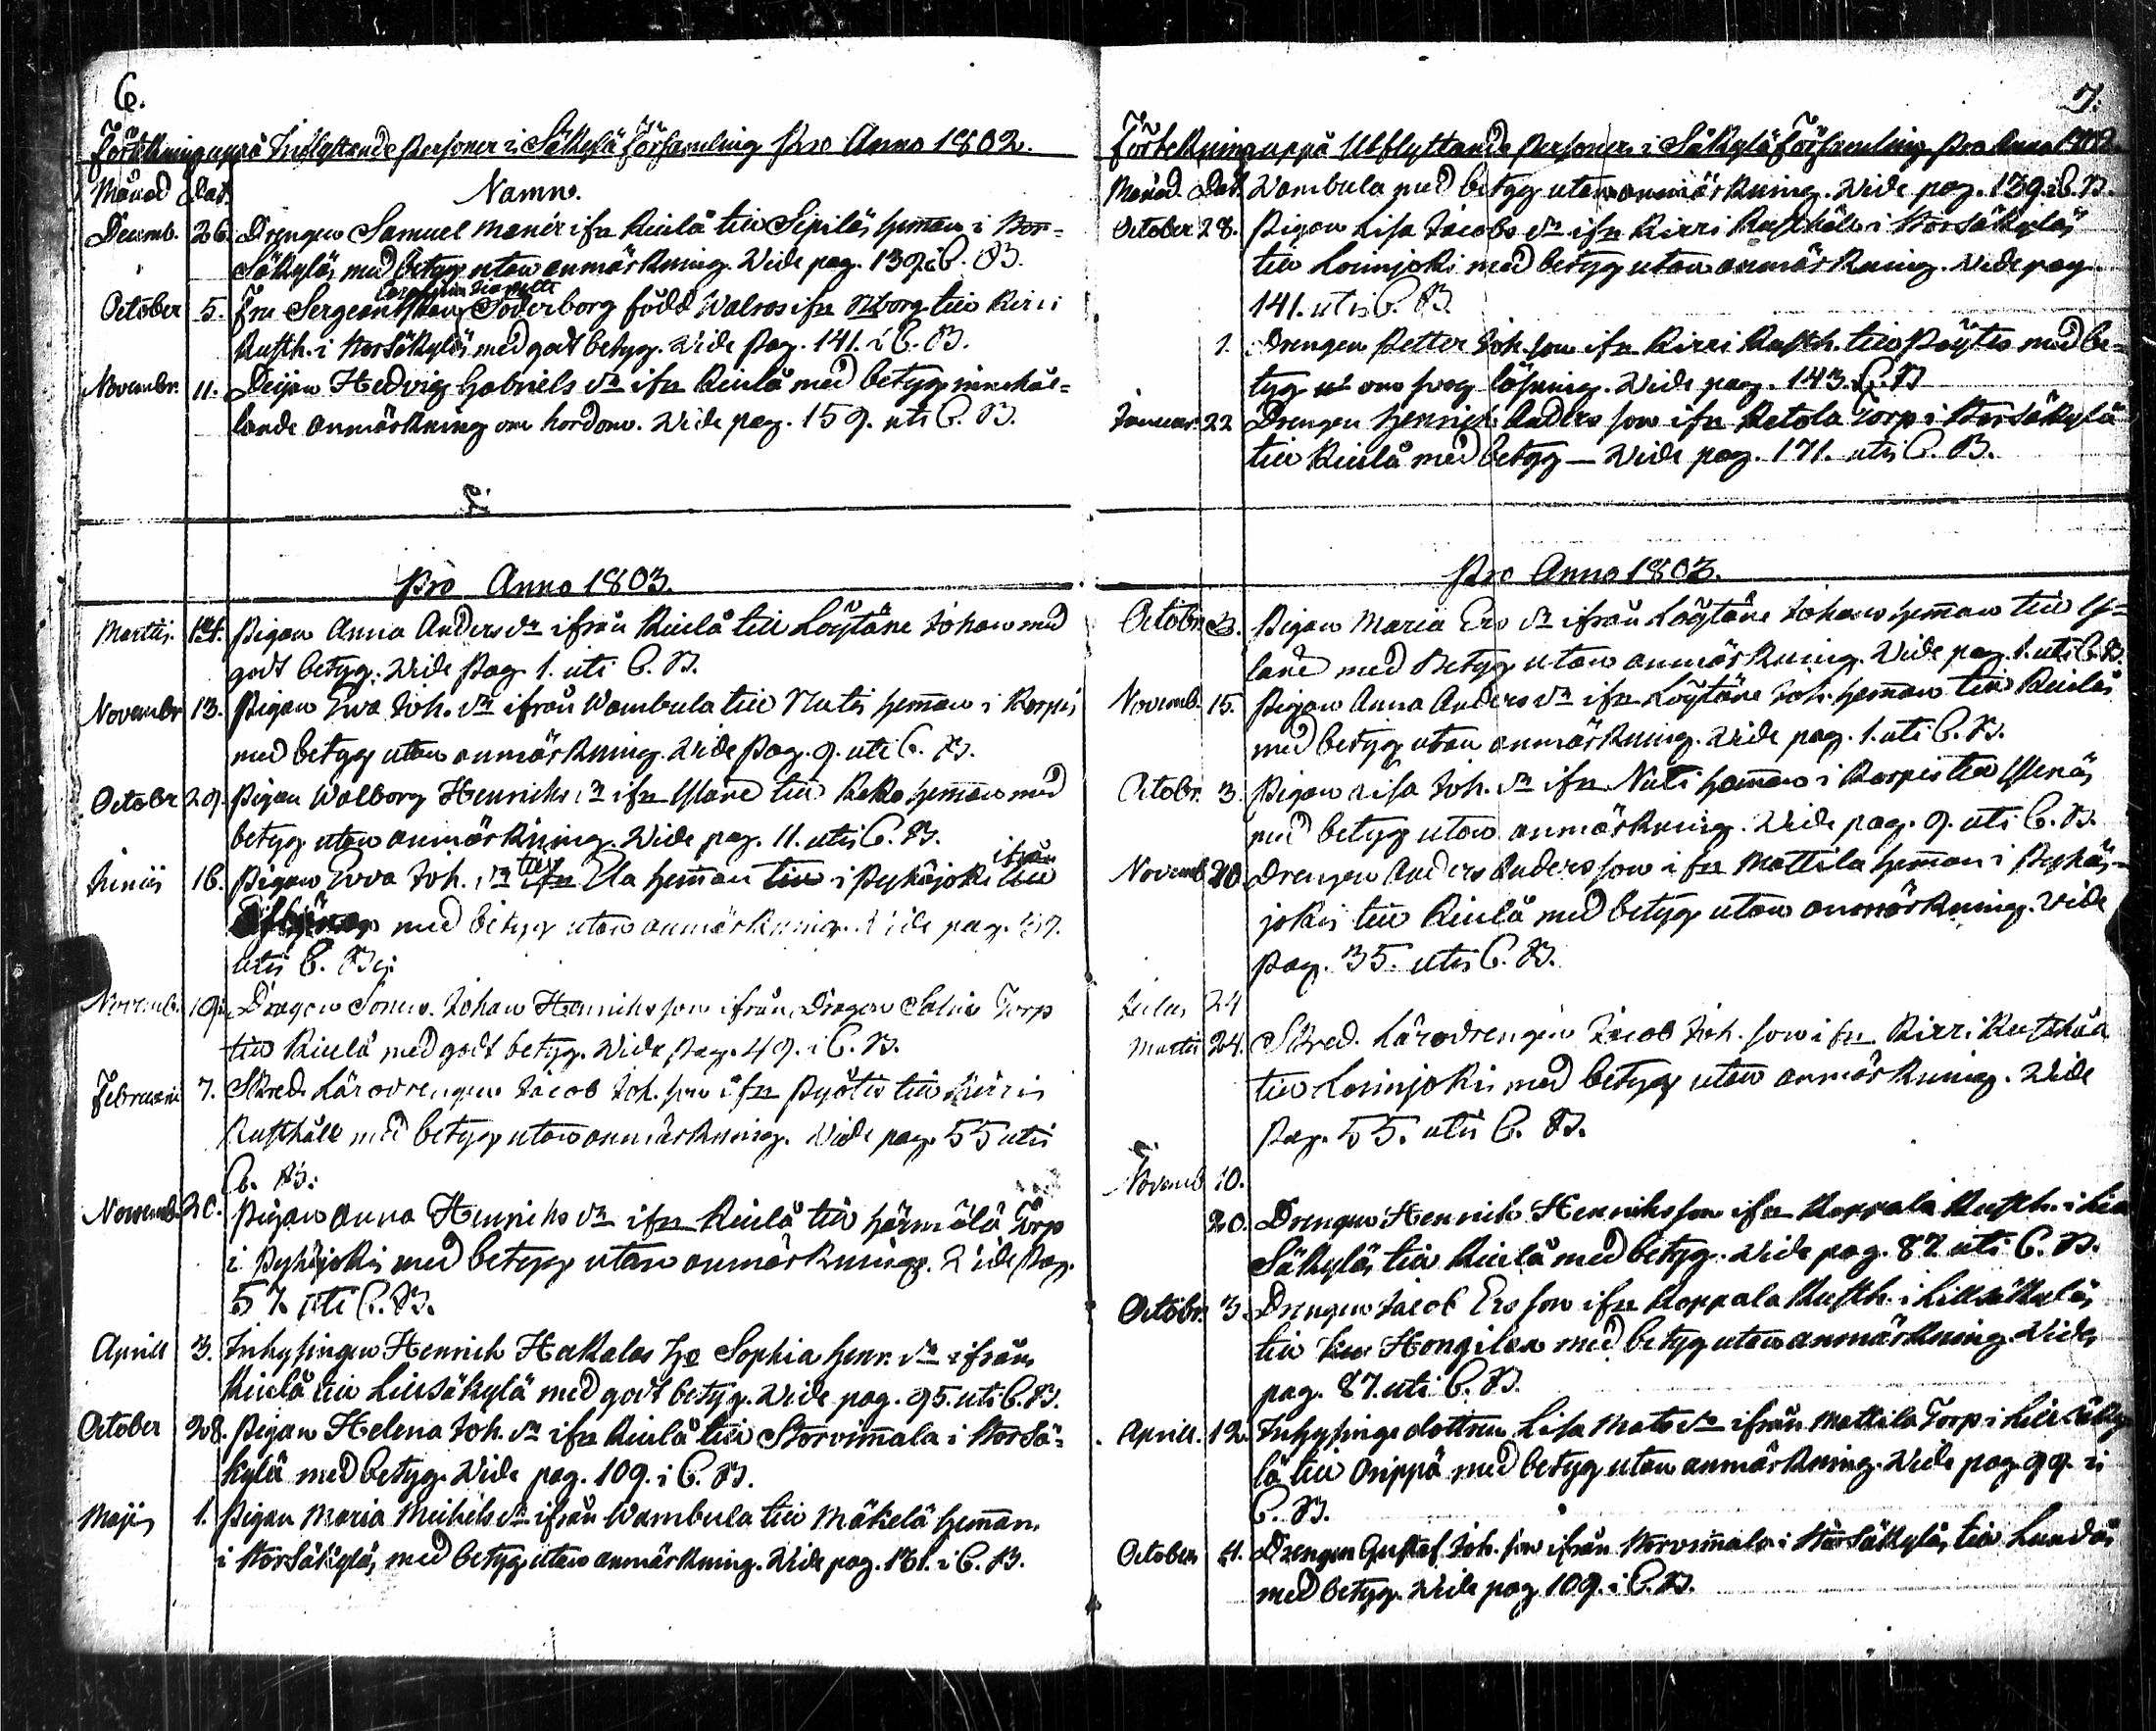 6.
Förtekning uppå Inflyttande Personer i Säkylä Församling Pro Anno 1802.
Månad Dat. Namn.
Decemb. 26. Drengen Samuel Manér ifrn Kiulå till Sipilä hemman i Stor-
Säkylä, med betyg utan anmärkning. Vide pag. 139. i C. B.
October 5. Fru Sergeantskan Söderborg född Walros ifrn Wiborg till Kirri
Rusth. i Storsäkylä med godt betyg. Vide Pag. 141. i C. B.
Novembr. 11. Deijan Hedvig Gabriels dr ifrn Kiulå med betyg innehål-
lande anmärkning om hordom. Vide pag. 159. uti C. B.
Pro Anno 1803.
Martii Pigan Anna Anders dr ifrån Kiulå till Löytäne Johan med
godt betyg. Vide Pag. 1. uti C. B.
Novembr 13. Pigan Ewa Joh. dr ifrån Wambula till Nuti hemman i Korpis
med betyg utan anmärkning. Vide Pag. 9. uti C. B.
Octobr 29. Pigan Walborg Henrichs dr ifrn Yläne till Keko hemman med
betyg utan anmärkning. Vide pag. 11. uti C. B.
Junii 16. Pigan Ewa Joh. dr till ifrn Ela hemman till i Pyhäjoki till ifrån
med betyg utan anmärkning. Vide pag. 37.
uti C. B.
Novemb. 19. Dragon Sonen Johan Henrichsson ifrån Dragon Salin Torp
till Kiulå med godt betyg. Vide Pag. 49. i C. B.
Februarii 7. Skred. Lärodrengen Jacob Joh. son ifrn Pyötis till Kirri
Rusthåll med betyg utan anmärkning. Vide pag. 55 uti
C. B.
Novemb. 20. Pigan Anna Henrichs dr ifrn Kiulå till Härmälä Torp
i Pyhäjoki med betyg utan anmärkning. Vide Pag.
57. uti C. B.
Aprill 3. Inhysingen Henrich Hakala Ho Sophia Henr. dr ifrån
Kiulå till Lillsäkylä med godt betyg. Vide pag. 95. uti C. B.
October 28. Pigan Helena Joh. dr ifrn Kiulå till Storvimmala i Storsä-
kylä med betyg. Vide pag. 109. i C. B.
Maji 1. Pigan Maria Michels dr ifrån Wambula till Mäkelä hemman
i Storsäkylä, med betyg utan anmärkning. Vide pag. 161. i C. B.
7.
Förtekning uppå Utflyttande Personer i Säkylä Församling Pro Anno 1802.
Månad. Dat. Wambula med betyg utan anmärkning. Vide pag. 139. i C. B.
October 28. Pigan Lisa Jacobs dr ifrn Kirri Rusthåll i Storsäkylä
till Loimjoki med betyg utan anmärkning. Vide pag.
141. uti C. B.
1. Drengen Petter Joh. son ifrn Kirri Rusth. till Pöytis med be-
tyg om svag läsning. Vide pag. 143. C. B.
Januar. 22 Drengen Henrich Anders son ifrn Ketola Torp i Storsäkylä
till Kiulå med betyg – Vide pag. 171. uti C. B.
Pro Anno 1803.
Octobr. 3. Pigan Maria Ers dr ifrån Löytäne Johans hemman till Y-
läne med Betyg utan anmärkning. Vide pag. 1. uti C. B.
Novemb. 15. Pigan Anna Anders dr ifrn Löytäne Joh. hemman till Kiulå
med betyg utan anmärkning. Vide pag. 1. uti C. B.
Octobr. 3. Pigan Lisa Joh. dr ifrn Nuti hemman i Korpis till Ylenä
med betyg utan anmärkning. Vide pag. 9. uti C. B.
Novemb. 20. Drengen Anders Andersson ifrn Mattila hemman i Pyhä-
joki till Kiulå med betyg utan anmärkning. Vide
Pag. 35. uti C. B.
Julii 24
Martii 24. Skred. Lärodrengen Jacob Joh. son ifrn Kirri Rusthåll
till Loimjoki med betyg utan anmärkning. Vide
Pag. 55. uti C. B.
Novemb 10.
20. Drengen Henrich Henrichsson ifrn Koppala Rusth. i Lill
Säkylä till Kiulå med betyg. Vide pag. 87. uti C. B.
Octobr. 3. Drengen Jacob Ersson ifrn Koppala Rusth. i Lillsäkylä
till Hongilax med betyg utan anmärkning. Vide
pag. 87. uti C. B.
Aprill. 12. Inhysinge dottren Lisa Mats dr ifrån Mattila Torp i Lill Säky-
lä till Orippä med betyg utan anmärkning. Vide pag. 99. i
C. B.
October Drengen Gustaf Joh. son ifrån Storvimmala i Storsäkylä, till Lundo
med betyg. Vide pag 109. i C. B.